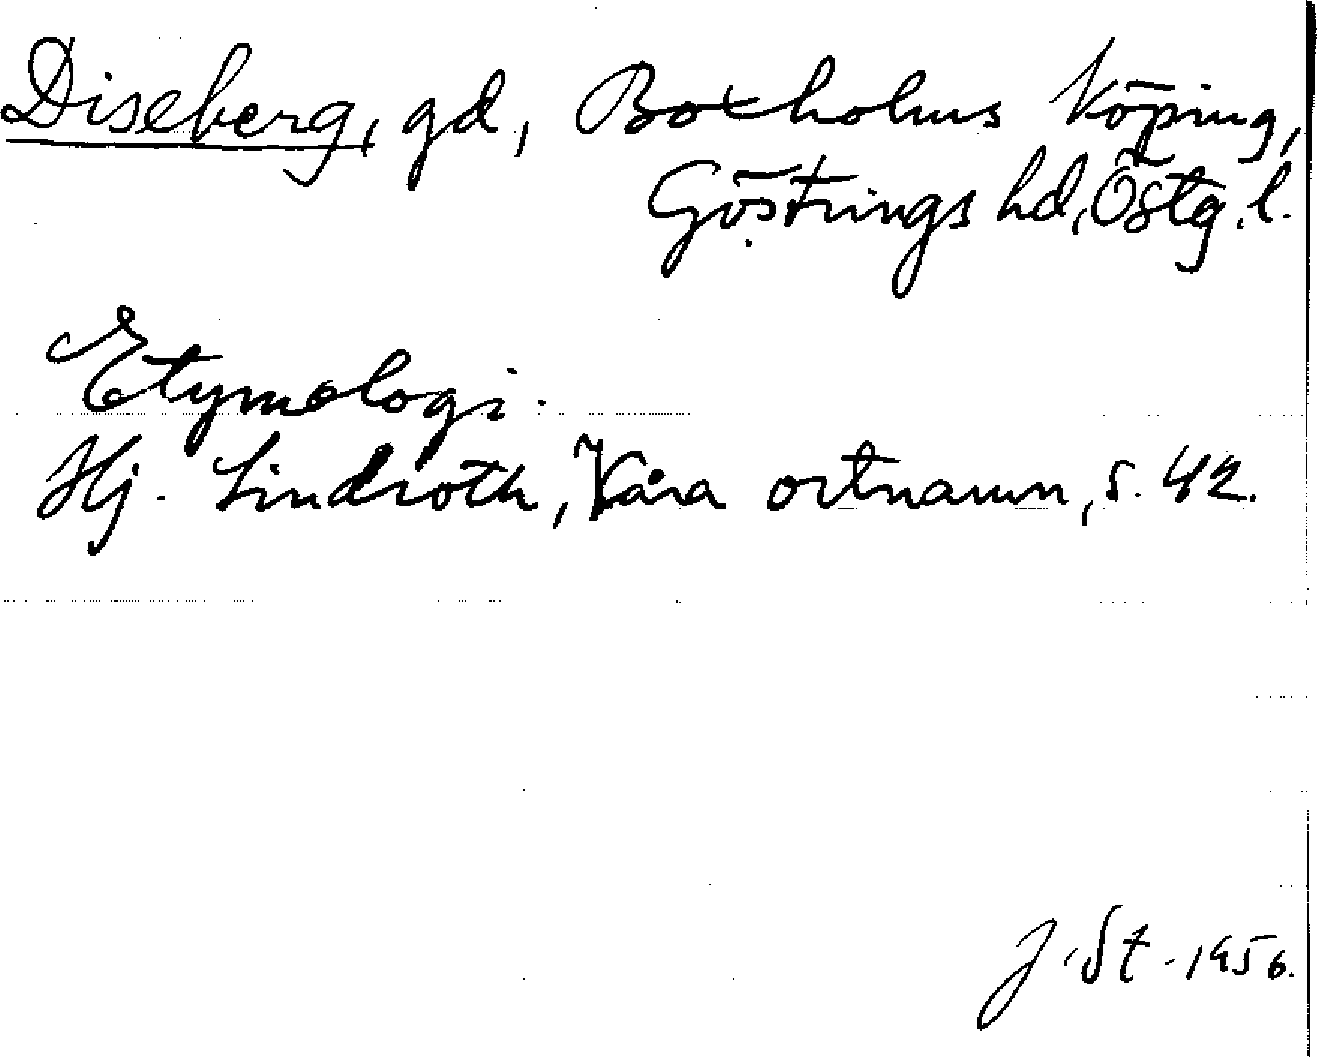 Diseberg, gd, Boxholms köping,
Göstrings hd, Östg. l.
Etymologi.
Hj. Lindroth, Våra ortnamn, s. 42.
J. St. 1956.